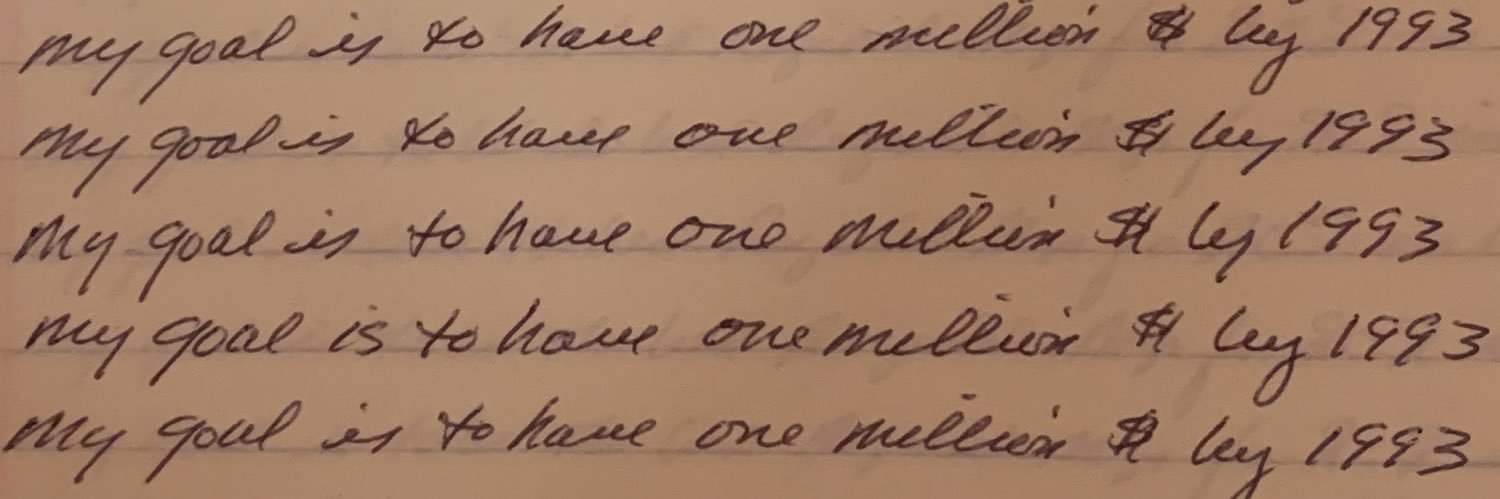 my goal is to have one million $ by 1993
my goal is to have one million $ by 1993
my goal is to have one million $ by 1993
my goal is to have one million $ by 1993
my goal is to have one million $ by 1993